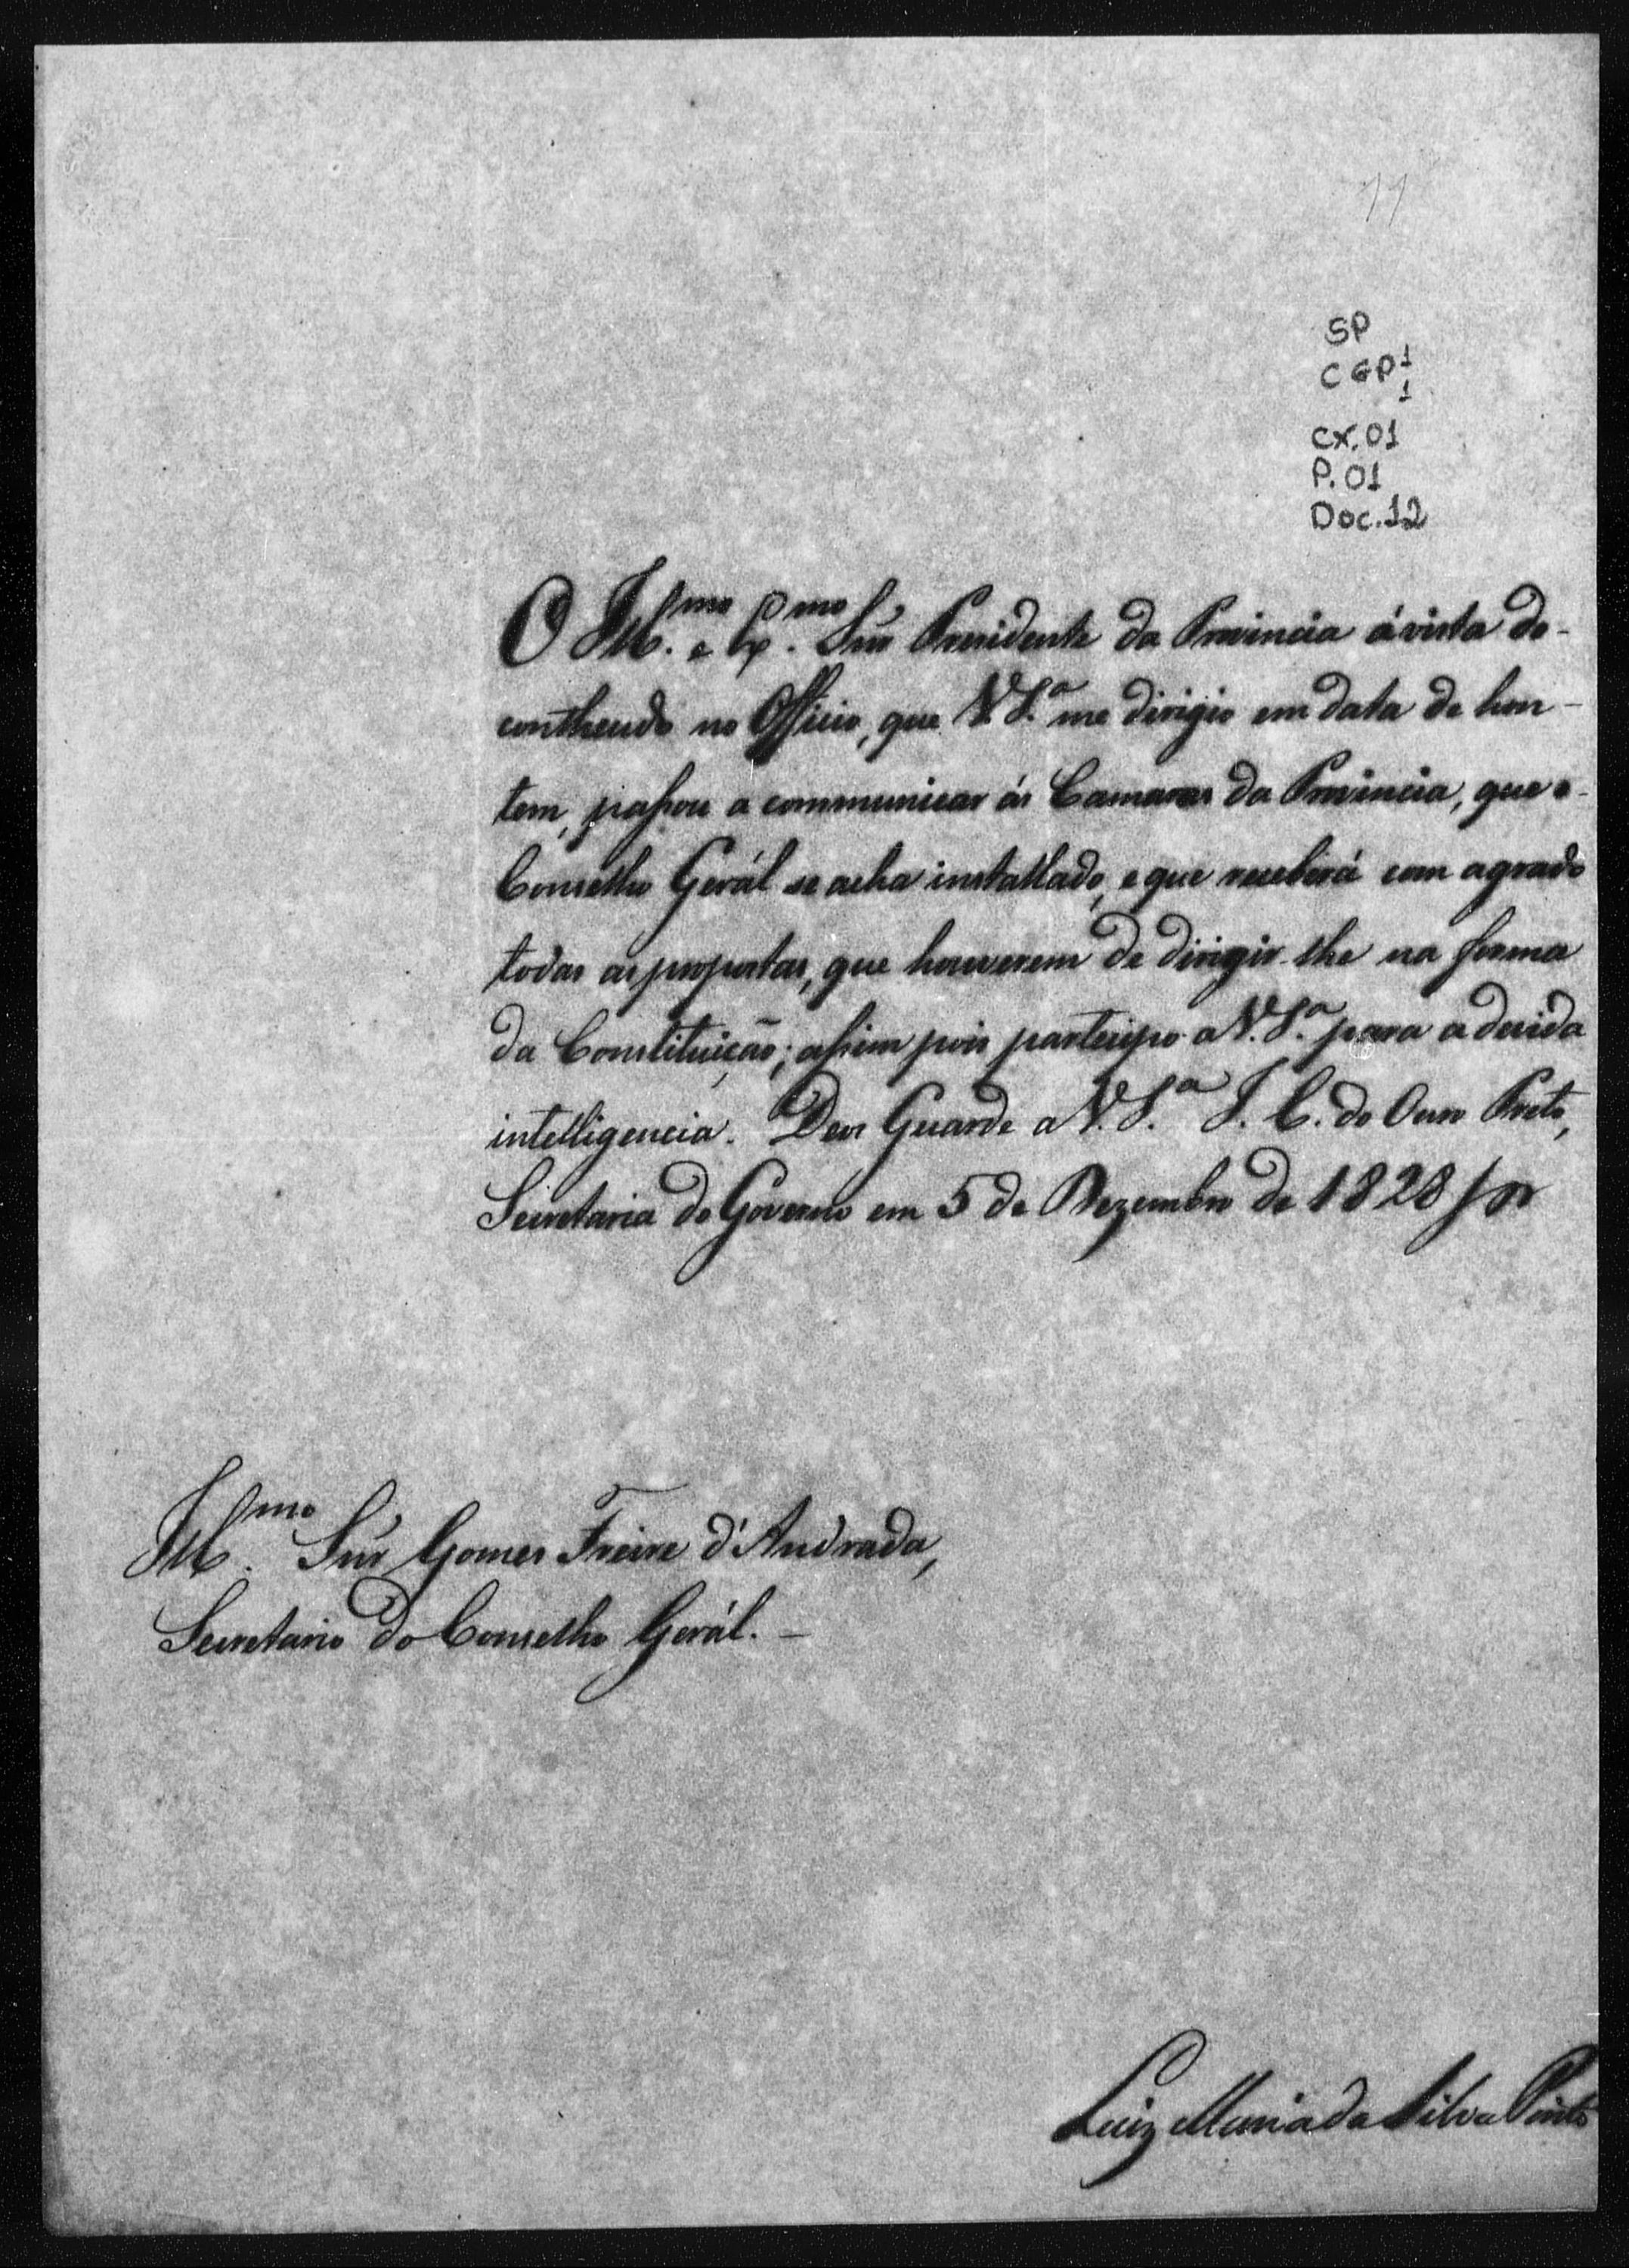 11
SP
CGP 1
1
CX.01
P.01
Doc.12
O Ill.mo e Ex.mo Sñr Presidente da Provincia á vista do
contheudo no Officio, que V. S.ª me dirigio em data de hon-
tem, passou a communicar ás Camaras da Provincia, que o
Conselho Gerál se acha installado, e que receberá com agrado
todas as propostas, que houverem de dirigir-lhe na forma
da Constituição; assim pois participo a V. S.ª para a devida
intelligencia. Deos Guarde a V. S.ª I. C. do Ouro Preto,
Secretaria do Governo em 5 de Dezembro de 1828
Ill.mo Sñr Gomes Freire d'Andrada,
Secretario do Conselho Gerál. —
Luiz Maria da Silva Pinto